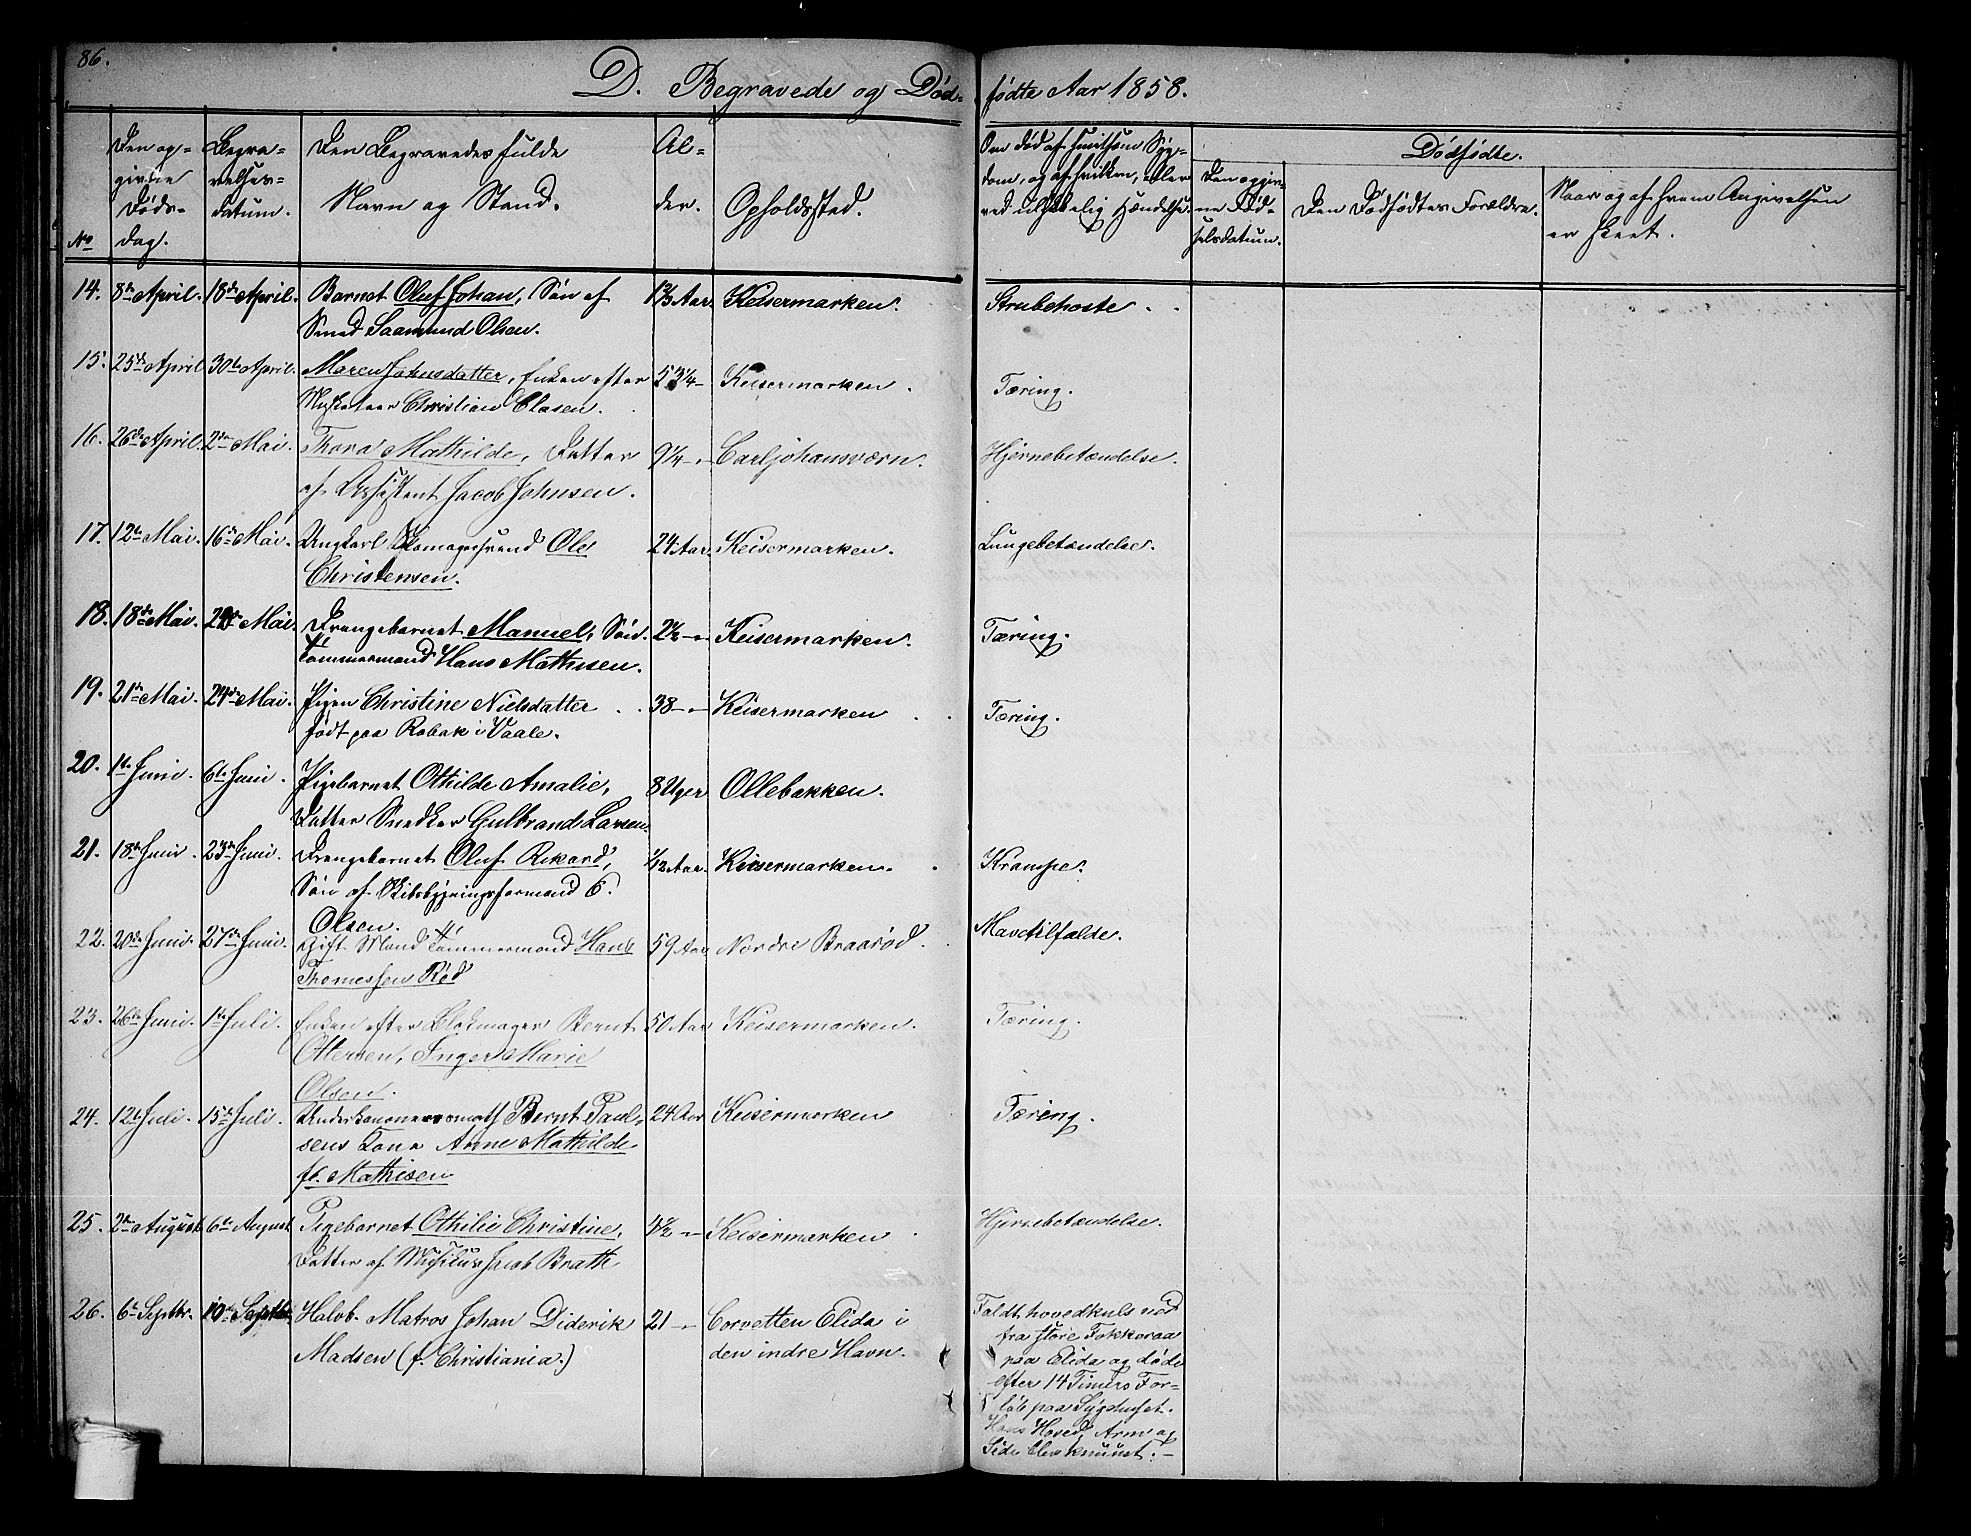 86.
D. Begravede og Død-
fødte Aar 1858.
No
Den op-
givne
Døds-
dag.
Begra-
velses-
datum.
Den Begravedes fulde
Navn og Stand.
Al-
der.
Opholdssted.
Om død af smitsom Syg-
dom, og af hvilken, eller
ved ulykkelig Hændelse.
Dødfødte.
Den opgiv-
ne Fød-
selsdatum.
Den Dødfødtes Forældre.
Naar og af hvem Angivelsen
er skeet.
14. 8de April. 18de April. Barnet Oluf Johan, Søn af 1 2/3 Aar. Keisermarken. Strubehoste
Smed Saamund Olsen.
15. 25de April 30te April. Maren Johnsdatter, Enken efter 53 1/4 -"- Keisermarken. Tæring.
Musketeer Christian Clasen.
16. 26de April. 2den Mai. Thora Mathilde, Datter 9 1/4 -"- Carljohansværn. Hjernebetændelse.
af Assistent Jacob Johnsen.
17. 12te Mai. 16de Mai. Ungkarl Skomagersvend Ole 24 Aar. Keisermarken. Lungebetændelse.
Christensen.
18. 18de Mai. Mai. Drengebarnet Manuel, Søn 2 1/2 -"- Keisermarken. Tæring.
Tømmermand Hans Mathisen.
19. 21de Mai. 24de Mai. Pigen Christine Nielsdatter 38 -"- Keisermarken Tæring.
født paa Robak i Vaale.
20. 1te Juni. 6te Juni. Pigebarnet Othilde Amalie, 8 Uger Ollebakken.
Datter Snedker Gulbrand Larsen.
21. 18de Juni. 23de Juni. Drengebarnet Oluf Rikard, 1/12 Aar. Keisermarken. Krampe.
Søn af Skibsbygningsformand C.
Olsen.
22. 20de Juni. 27de Juni. Gift Mand Tømmermand Hans 59 Aar Nordre Braarød. Mavetilfælde.
Thomessen Rød
23. 26de Juni. 1te Juli. Enken efter Blokmager Bernt 50 Aar Keisermarken. Tæring.
Ottersen, Inger Marie
Olsen.
24. 12te Juli. 15de Juli. Underkanoneersmath Bernt Paul- 24 Aar Keisermarken Tæring.
sens Kone Anne Mathilde
f. Mathisen
25. 2den August 6te August Pigebarnet Othilie Christine, 4 1/2 -"- Keisermarken Hjernebetændelse.
Datter af Musikus Jacob Brath
26. 6te Septbr. 10de Septbr. Halvb. Matros Johan Diderik 21 -"- Corvetten Elida i
Madsen (f. Christiania.) den indre Havn.
Faldt hovedkuls ned
fra store Fokkeraa
paa Elida og døde
efter 14 Timers For-
løb paa Sygehuset.
Hans Hoved, Arm og
Side blev knuust. -